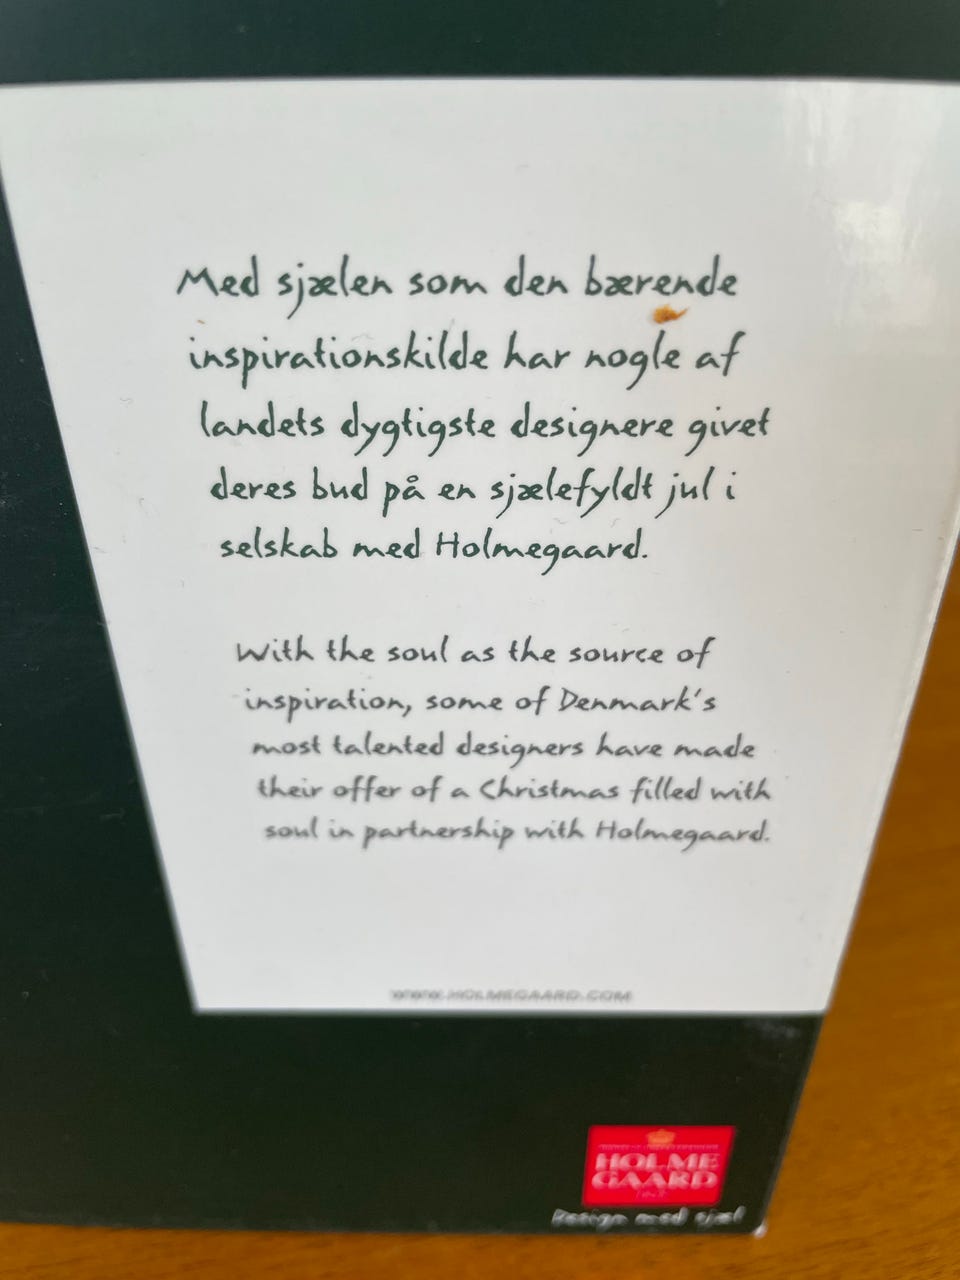 Med sjælen som den bærende
inspirationskilde har nogle af
landets dygtigste designere givet
deres bud på en sjælefyldt jul i
selskab med Holmegaard.
With the soul as the source of
inspiration, some of Denmark's
most talented designers have made
their offer of a Christmas filled with
soul in partnership with Holmegaard.
WWW.HOLMEGAARD.COM
HOLME
GAARD
Design med sjæl